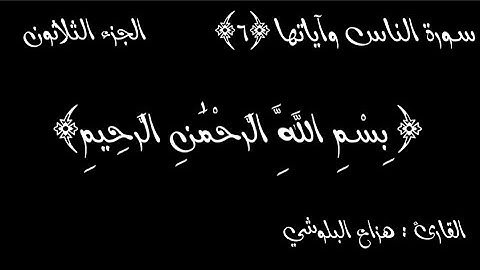 سورة الناس وآياتها ﴿٦﴾ الجزء الثلاثون
﴿بِسْمِ اللَّهِ الرَّحْمَٰنِ الرَّحِيمِ﴾
القارئ : هزاع البلوشي